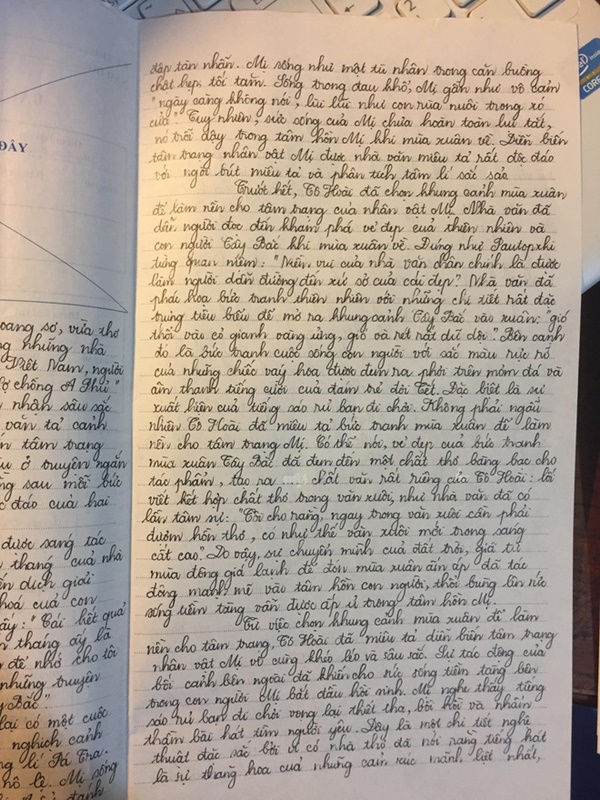 ĐÂY
oang sơ, vừa thơ
ng những nhà
Việt Nam, người
ợ chồng A Phủ."
nhận sâu sắc
văn tả cảnh
n tâm trạng
u ở truyện ngắn
ng sau mỗi bức
c đáo của hai
được sáng tác
thang của nhà
ến dịch giải
hoá của con
ãy: "Cái kết quả
n tháng ấy là
để nhớ cho tôi
những truyện
y Bắc."
lại có một cuộc
nghịch cảnh
g lí Pá Tra.
nô lệ. Mị sống
đập tàn nhẫn. Mị sống như một tù nhân trong căn buồng
chật hẹp, tối tăm. Sống trong đau khổ, Mị gần như vô cảm
"ngày càng không nói, lùi lũi như con rùa nuôi trong xó
cửa." Tuy nhiên, sức sống của Mị chưa hoàn toàn lụi tắt,
nó trỗi dậy trong tâm hồn Mị khi mùa xuân về. Diễn biến
tâm trạng nhân vật Mị được nhà văn miêu tả rất độc đáo
với ngòi bút miêu tả và phân tích tâm lí sắc sảo.
Trước hết, Tô Hoài đã chọn khung cảnh mùa xuân
để làm nền cho tâm trạng của nhân vật Mị. Nhà văn đã
dẫn người đọc đến khám phá vẻ đẹp của thiên nhiên và
con người Tây Bắc khi mùa xuân về. Đúng như Pautopxki
từng quan niệm: "Niềm vui của nhà văn chân chính là được
làm người dẫn đường đến xứ sở của cái đẹp". Nhà văn đã
phác họa bức tranh thiên nhiên với những chi tiết rất đặc
trưng tiêu biểu để mở ra khung cảnh Tây Bắc vào xuân: "gió
thổi vào cỏ gianh vàng ửng, gió và rét rất dữ dội". Bên cạnh
đó là bức tranh cuộc sống con người với sắc màu rực rỡ
của những chiếc váy hoa được đem ra phơi trên mỏm đá và
âm thanh tiếng cười của đám trẻ đợi Tết. Đặc biệt là sự
xuất hiện của tiếng sáo rủ bạn đi chơi. Không phải ngẫu
nhiên Tô Hoài đã miêu tả bức tranh mùa xuân để làm
nền cho tâm trạng Mị. Có thể nói, vẻ đẹp của bức tranh
mùa xuân Tây Bắc đã đem đến một chất thơ bàng bạc cho
tác phẩm, tạo ra ..... chất văn rất riêng của Tô Hoài: lối
viết kết hợp chất thơ trong văn xuôi, như nhà văn đã có
lần tâm sự: "Tôi cho rằng, ngay trong văn xuôi cần phải
đượm hồn thơ, có như thế văn xuôi mới trong sáng
cất cao". Do vậy, sự chuyển mình của đất trời, giã từ
mùa đông giá lạnh để đón mùa xuân ấm áp đã tác
động mạnh mẽ vào tâm hồn con người, thổi bùng lên sức
sống tiềm tàng vẫn được ấp ủ trong tâm hồn Mị.
Từ việc chọn khung cảnh mùa xuân để làm
nền cho tâm trạng, Tô Hoài đã miêu tả diễn biến tâm trạng
nhân vật Mị vô cùng khéo léo và sâu sắc. Sự tác động của
bối cảnh bên ngoài đã khiến cho sức sống tiềm tàng bên
trong con người Mị bắt đầu hồi sinh. Mị nghe thấy tiếng
sáo rủ bạn đi chơi vọng lại thiết tha, bồi hồi và nhẩm
thầm bài hát tìm người yêu. Đây là một chi tiết nghệ
thuật đặc sắc bởi vì có nhà thơ đã nói rằng tiếng hát
là sự thăng hoa của những cảm xúc mãnh liệt nhất,